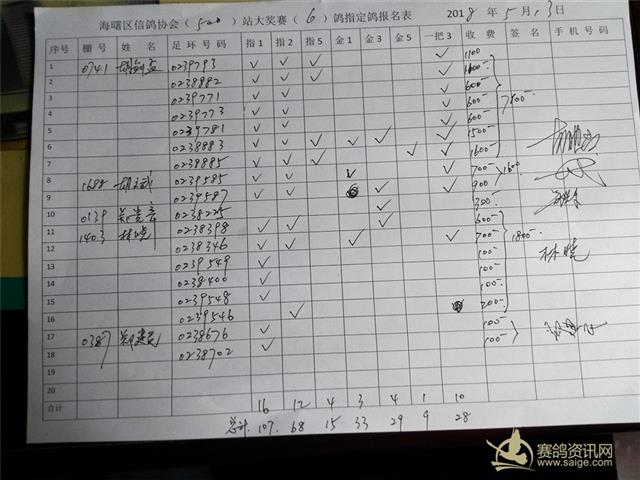 海曙区信鸽协会(500)站大奖赛(6)鸽指定鸽报名表 2018年5月13日
序号 棚号 姓名 足环号码 指1 指2 指5 金1 金3 金5 一把3 收费 签名 手机号码
1 0741 0239793 ✓ ✓ ✓ ✓ 1100
2 0238882 ✓ ✓ ✓ ✓
3 0239771 ✓ ✓ ✓ 600-
4 0239773 ✓ ✓ ✓ 600-
5 0239781 ✓ ✓ ✓ 600-
6 0238883 ✓ ✓ ✓ ✓ ✓ ✓ 1500-
7 0238885 ✓ ✓ ✓ ✓ ✓ 1600-
8 1688 0239585 ✓ ✓ ✓ ✓ 700-
9 0239587 ✓ ✓ ✓ ✓ 900
10 0139 0238225 ✓ 300-
11 1403 林晓 0238398 ✓ ✓ ✓ 600-
12 0238346 ✓ ✓ ✓ ✓ 700- 1800- 林晓
13 0239549 ✓ 100-
14 0238400 ✓ 100-
15 0239548 ✓ 100-
16 0239546 ✓ 200-
17 0387 0238676 ✓ 100-
18 0238702 ✓ 100-
19
20
合计 16 12 4 3 4 1 10
总计. 107. 68 15 33 29 9 28
赛鸽资讯网
www.saige.com